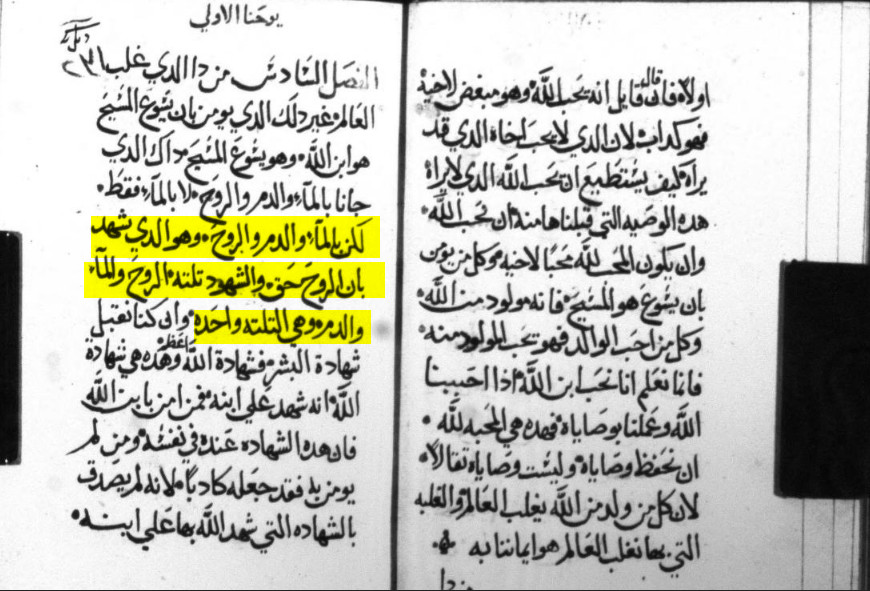 اولاً فان قال قايل انه يحب الله وهو مبغض لاخيه
فهو كداب لان الدي لا يحب اخاه الدي قد
يراه كيف يستطيع ان يحب الله الدي لا يراه
هده الوصيه التي قبلناها منه ان نحب الله
وان يكون المحب لله محبًا لاخيه وكل من يومن
بان يشوع هو المسيح فانه مولود من الله
وكل من احب الوالد فهو يحب المولود منه
فانما نعلم انا نحب ابن الله ادا احببنا
الله وعملنا بوصاياه فهده هي المحبه لله
ان نحفظ وصاياه وليست وصاياه تقالاً
لان كل من ولد من الله يغلب العالم والغلبه
التي بها نغلب العالم هو ايماننا به
من دا
يوحنا الاولي
الفصل السادس من دا الدي غلب
العالم غير دلك الدي يومن بان يشوع المسيح
هو ابن الله وهو يشوع المسيح داك الدي
جانا بالماء والدم والروح لا بالماء فقط
لكن بالماء والدم والروح وهو الدي يشهد
بان الروح حق والشهود تلته الروح والماء
والدم وهي التلته واحده وان كنا نقبل
شهادة البشر فشهادة الله اعظم وهده هي شهادة
الله انه شهد علي ابنه فمن امن بابن الله
فان هده الشهاده عنده في نفسه ومن لم
يومن به فقد جعله كادبًا لانه لم يصدق
بالشهاده التي شهد الله بها علي ابنه